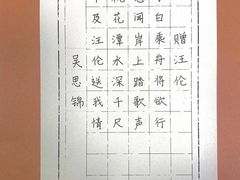 赠汪伦
白乘舟将欲行
闻岸上踏歌声
花潭水深千尺
及汪伦送我情
吴思锦